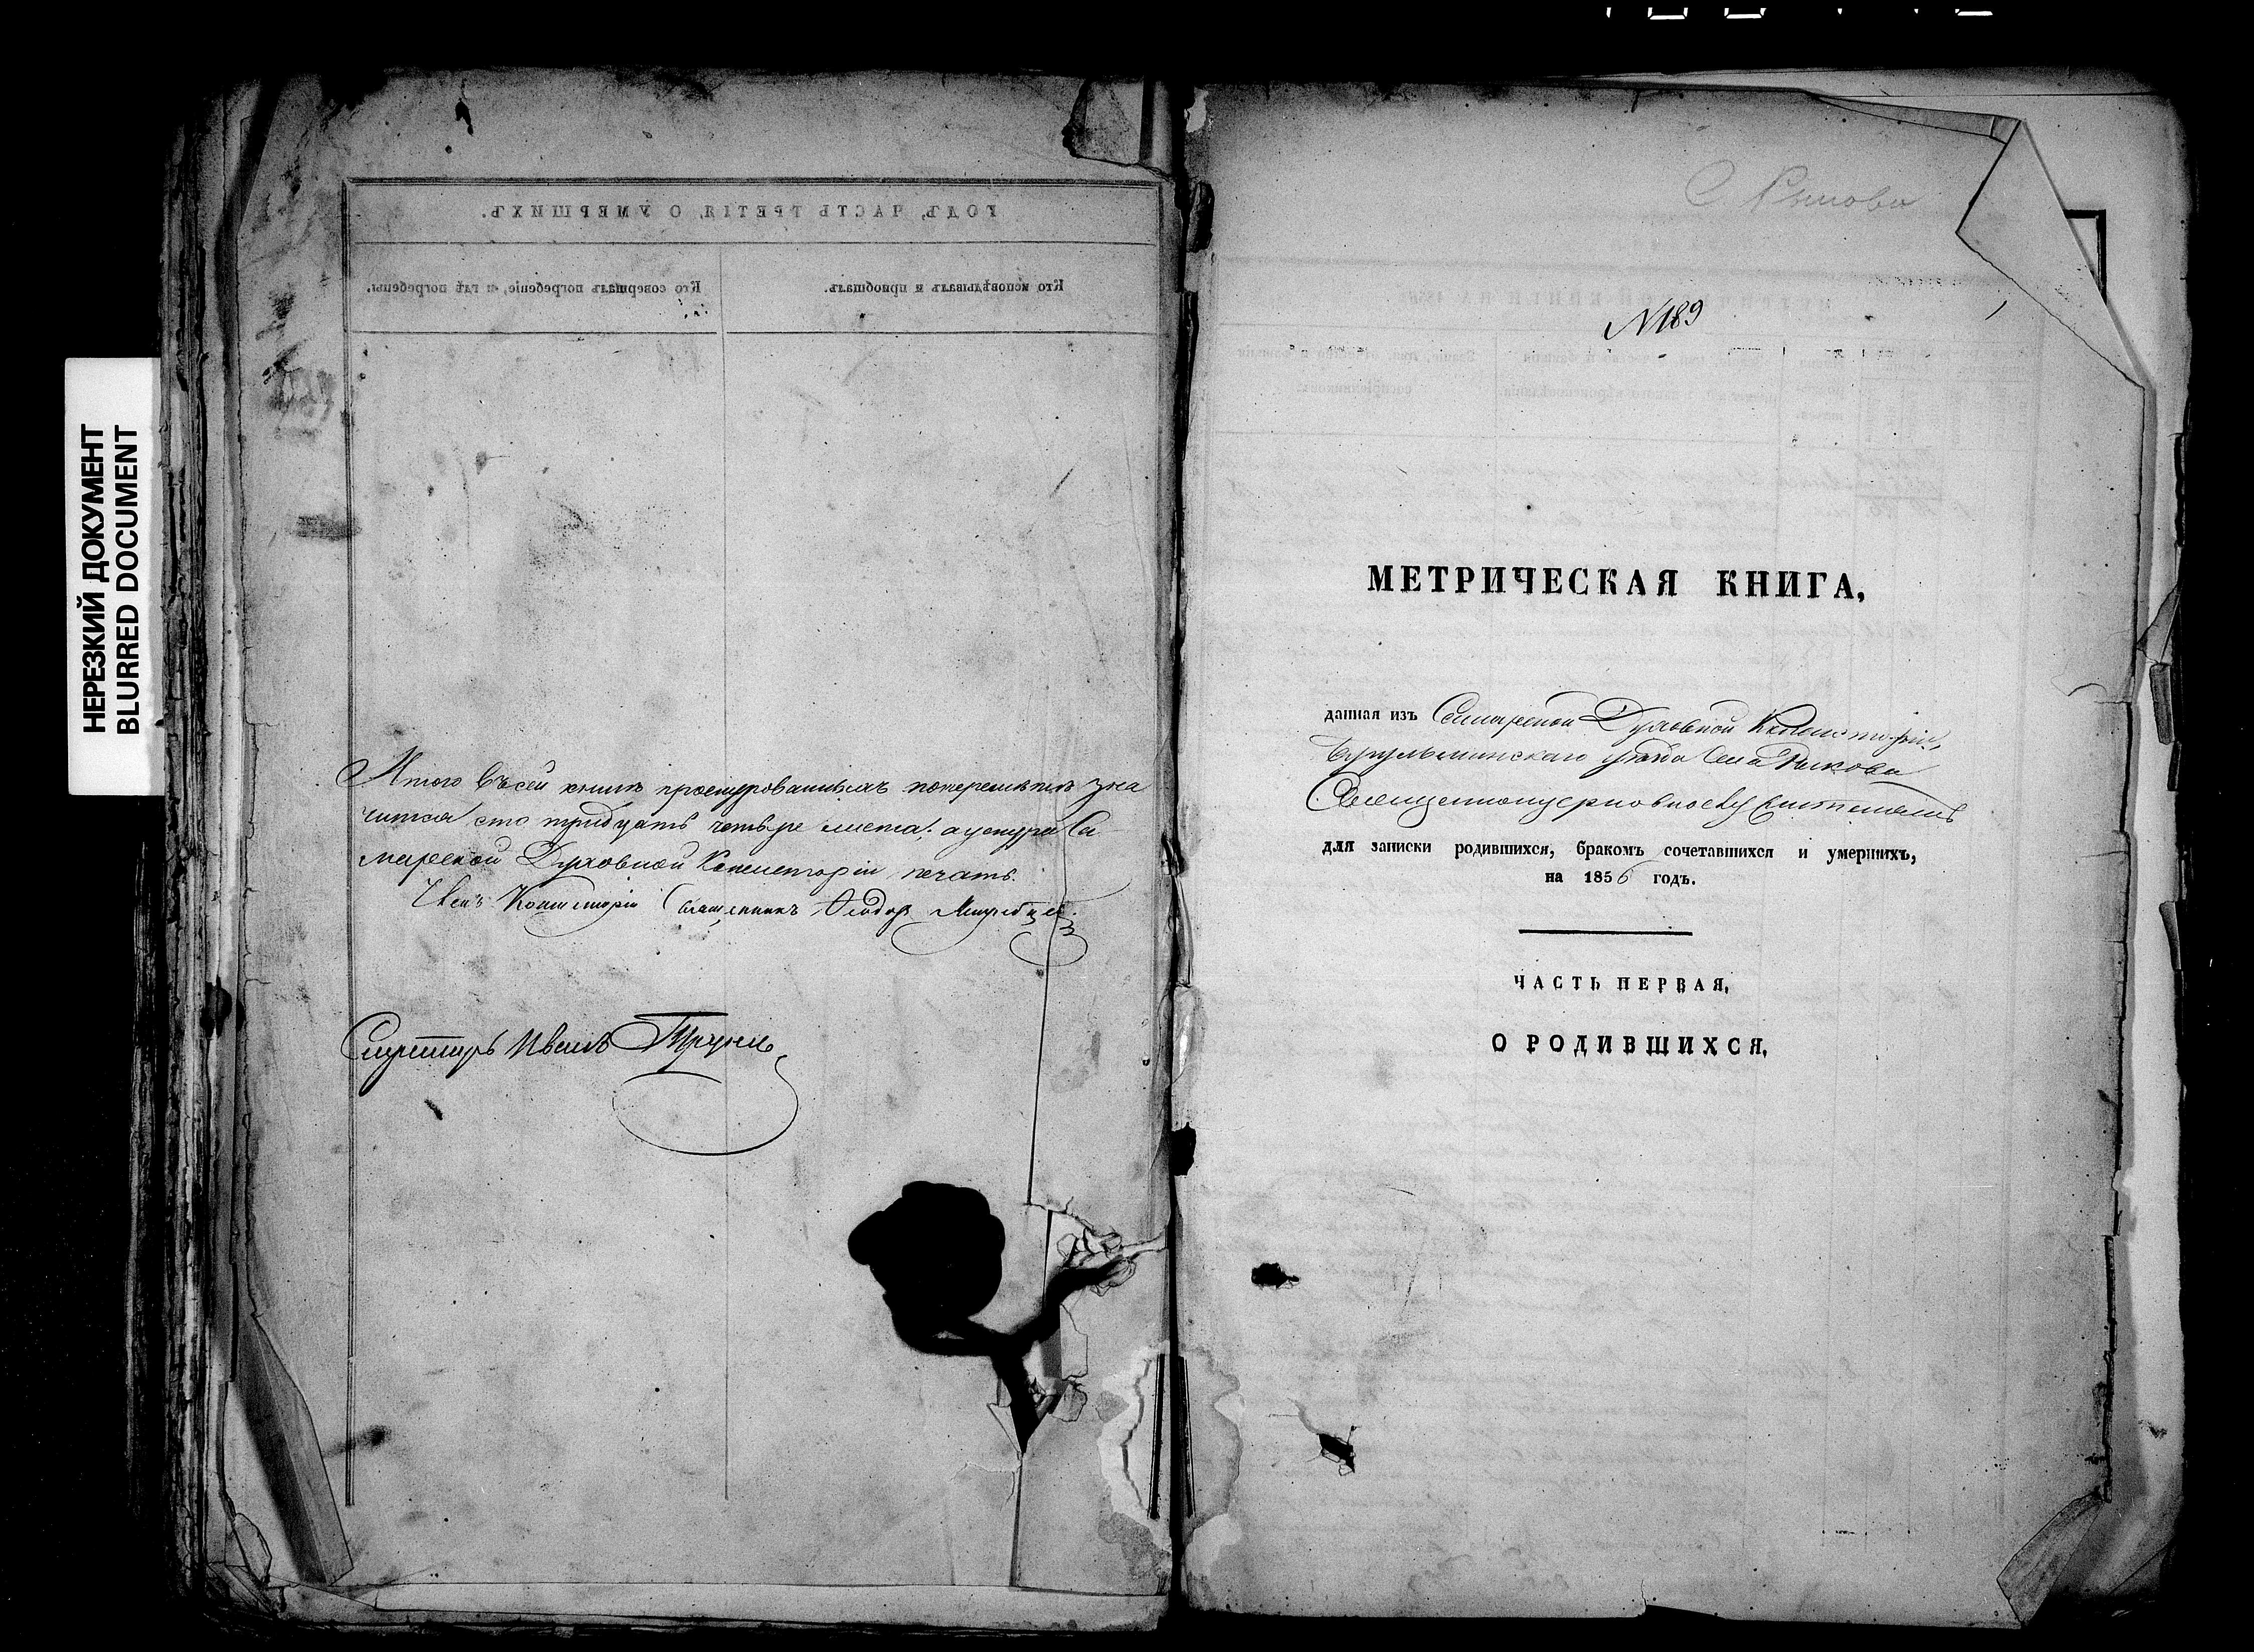 НЕРЕЗКИЙ ДОКУМЕНТ
BLURRED DOCUMENT
ГОДЪ, ЧАСТЬ ТРЕТІЯ, О УМЕРШИХЪ.
Кто исповѣдывалъ и пріобщалъ.
Кто совершалъ погребеніе, и гдѣ погребены.
Итого въ сей книгѣ прошнурованныхъ по зна
чится сто тридцать четыре листа; а у шнура Са
марской Духовной Консисторіи печать.
Членъ Консисторіи Священникъ Ѳеодоръ
Секретарь Иванъ
С. Рыкова
N 189
МЕТРИЧЕСКАЯ КНИГА,
данная изъ Самарской Духовной Консисторіи,
Бугульминскаго уѣзда села Рыкова
Священноцерковнослужителямъ
для записки родившихся, бракомъ сочетавшихся и умершихъ,
на 1856 годъ.
ЧАСТЬ ПЕРВАЯ,
О РОДИВШИХСЯ,